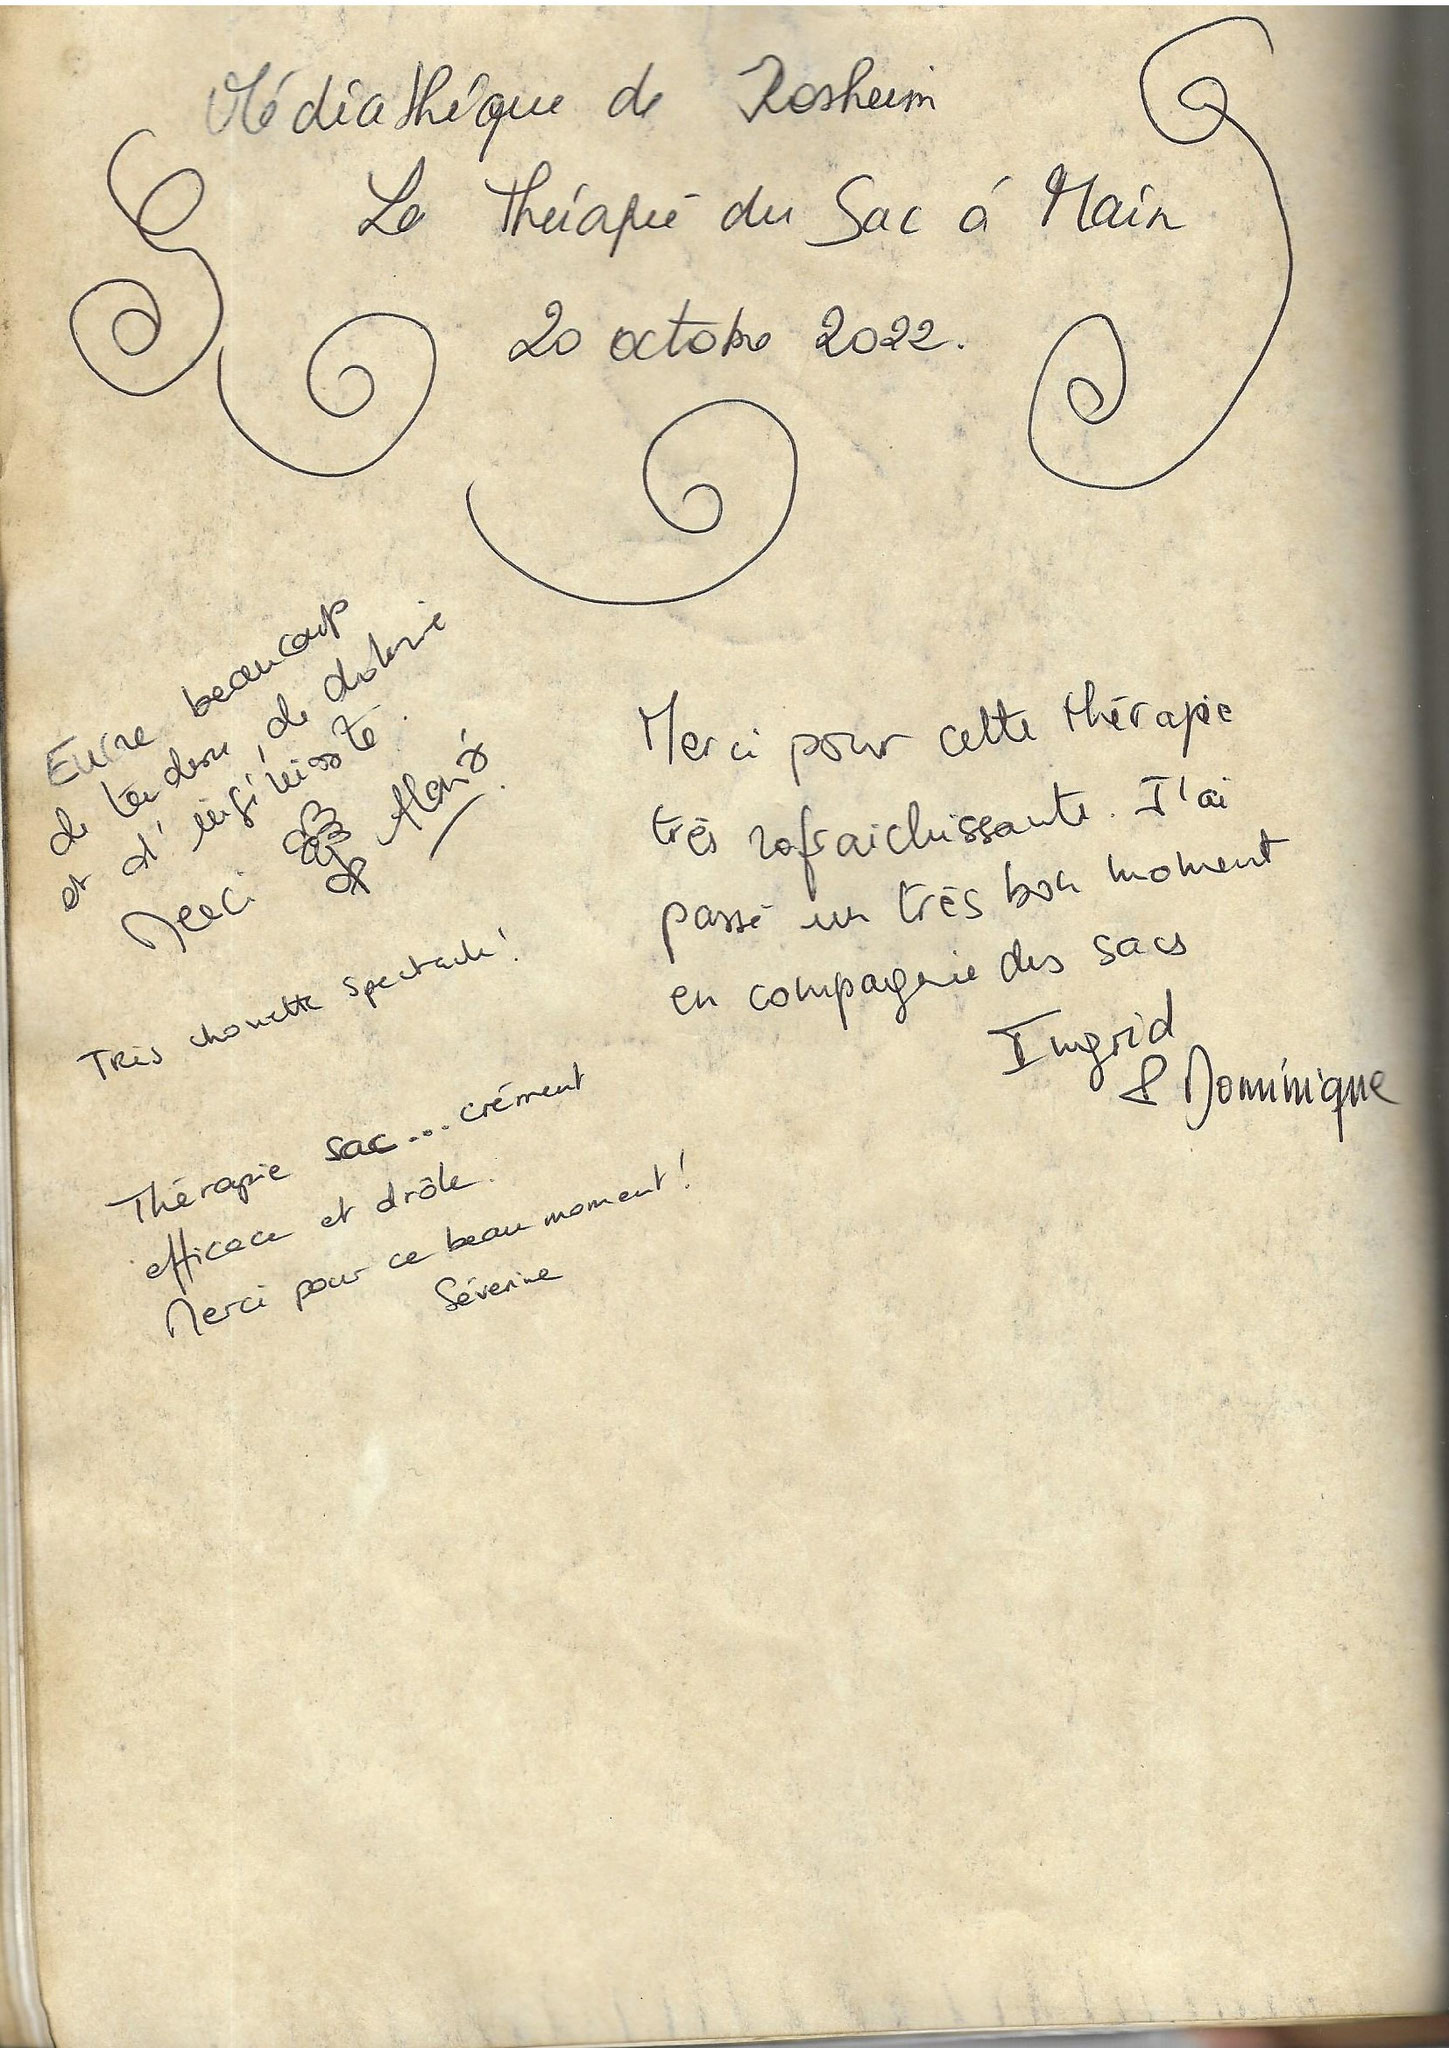 Médiathèque de Rosheim
La Thérapie du Sac à Main
20 octobre 2022.
beaucoup
de tendresse, de drôlerie
et d'ingéniosité.
Merci
Très chouette spectacle !
Thérapie sac...crément
efficace et drôle.
Merci pour ce beau moment !
Séverine
Merci pour cette thérapie
très rafraichissante. J'ai
passé un très bon moment
en compagnie des sacs
Ingrid
& Dominique